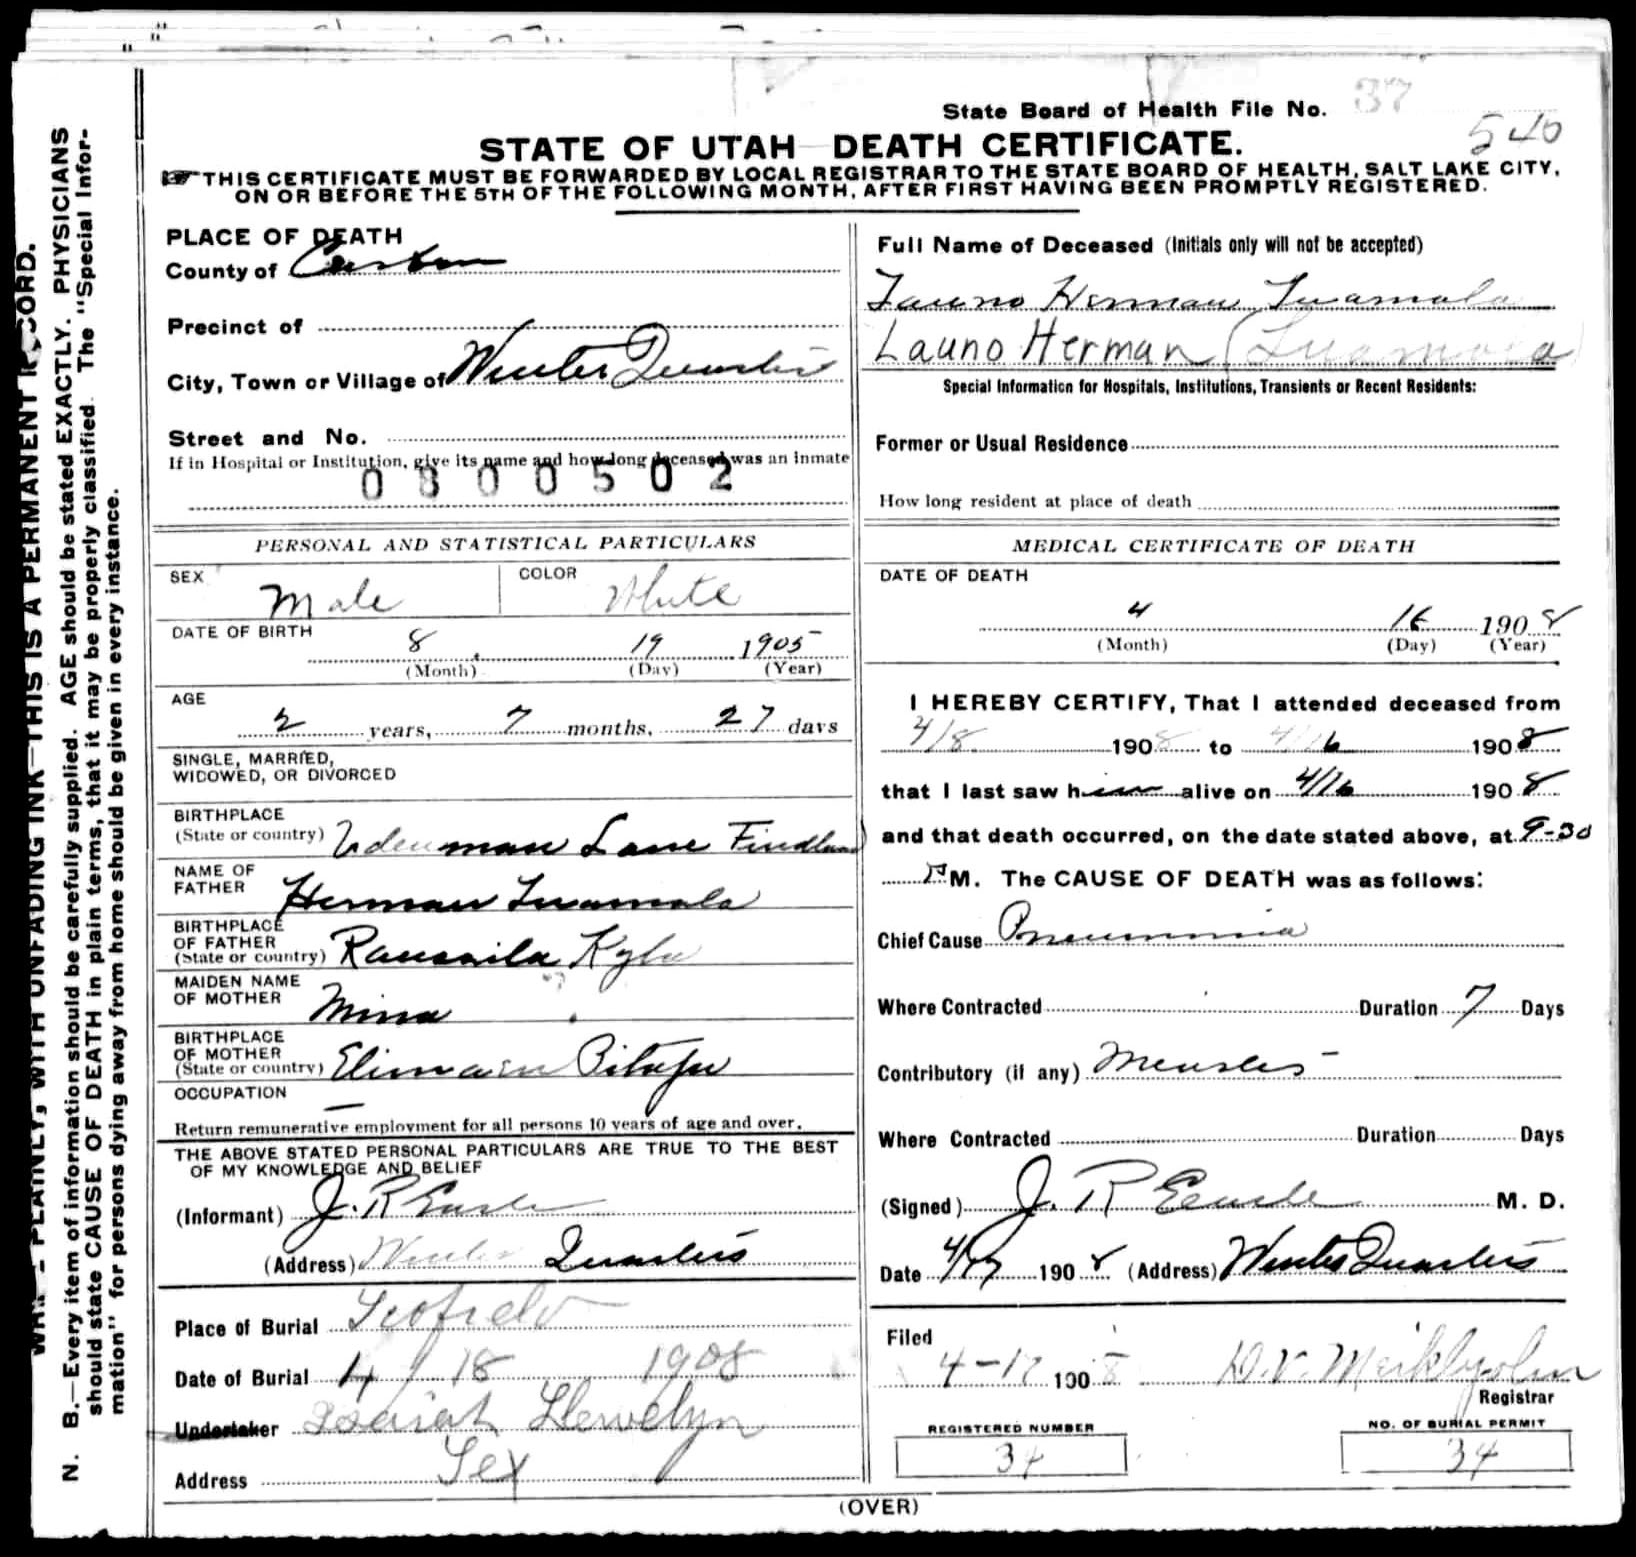 State Board of Health File No. 37
540
STATE OF UTAH DEATH CERTIFICATE.
THIS CERTIFICATE MUST BE FORWARDED BY LOCAL REGISTRAR TO THE STATE BOARD OF HEALTH, SALT LAKE CITY,
ON OR BEFORE THE 5TH OF THE FOLLOWING MONTH, AFTER FIRST HAVING BEEN PROMPTLY REGISTERED.
N. B.—Every item of information should be carefully supplied. AGE should be stated EXACTLY. PHYSICIANS
should state CAUSE OF DEATH in plain terms, that it may be properly classified. The "Special Infor-
mation" for persons dying away from home should be given in every instance.
PLAINLY, WITH UNFADING INK—THIS IS A PERMANENT RECORD.
PLACE OF DEATH
County of Carbon
Precinct of
City, Town or Village of Winter Quarters
Street and No.
If in Hospital or Institution, give its name and how long deceased was an inmate
0800502
PERSONAL AND STATISTICAL PARTICULARS
SEX Male COLOR White
DATE OF BIRTH 8 19 1905
(Month) (Day) (Year)
AGE
2 years, 7 months, 27 days
SINGLE, MARRIED,
WIDOWED, OR DIVORCED
BIRTHPLACE
(State or country) Lane
NAME OF
FATHER Herman
BIRTHPLACE
OF FATHER
(State or country)
MAIDEN NAME
OF MOTHER Mina
BIRTHPLACE
OF MOTHER
(State or country)
OCCUPATION —
Return remunerative employment for all persons 10 years of age and over.
THE ABOVE STATED PERSONAL PARTICULARS ARE TRUE TO THE BEST
OF MY KNOWLEDGE AND BELIEF
(Informant) J. R.
(Address) Winter Quarters
Place of Burial Scofield
Date of Burial 4 / 18 1908
Undertaker Isaiah Llewelyn
Address Sex
Full Name of Deceased (Initials only will not be accepted)
Herman
Launo Herman
Special Information for Hospitals, Institutions, Transients or Recent Residents:
Former or Usual Residence
How long resident at place of death
MEDICAL CERTIFICATE OF DEATH
DATE OF DEATH
4 16 1908
(Month) (Day) (Year)
I HEREBY CERTIFY, That I attended deceased from
4/8 1908 to 4/16 1908
that I last saw him alive on 4/16 1908
and that death occurred, on the date stated above, at 9-30
P M. The CAUSE OF DEATH was as follows:
Chief Cause Pneumonia
Where Contracted Duration 7 Days
Contributory (if any) Measles –
Where Contracted Duration Days
(Signed) J. R. M. D.
Date 4/17 1908 (Address) Winter Quarters
Filed
4-17 1908 D. V.
Registrar
REGISTERED NUMBER
34
NO. OF BURIAL PERMIT
34
(OVER)